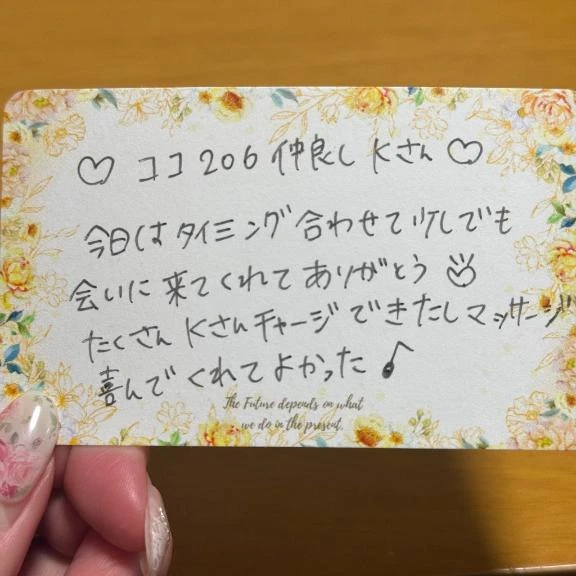 ♡ ココ206 仲良し Kさん ♡
今日はタイミング合わせて少しでも
会いに来てくれてありがとう
たくさん Kさんチャージできたしマッサージ
喜んでくれてよかった♪
The Future depends on what
we do in the present.